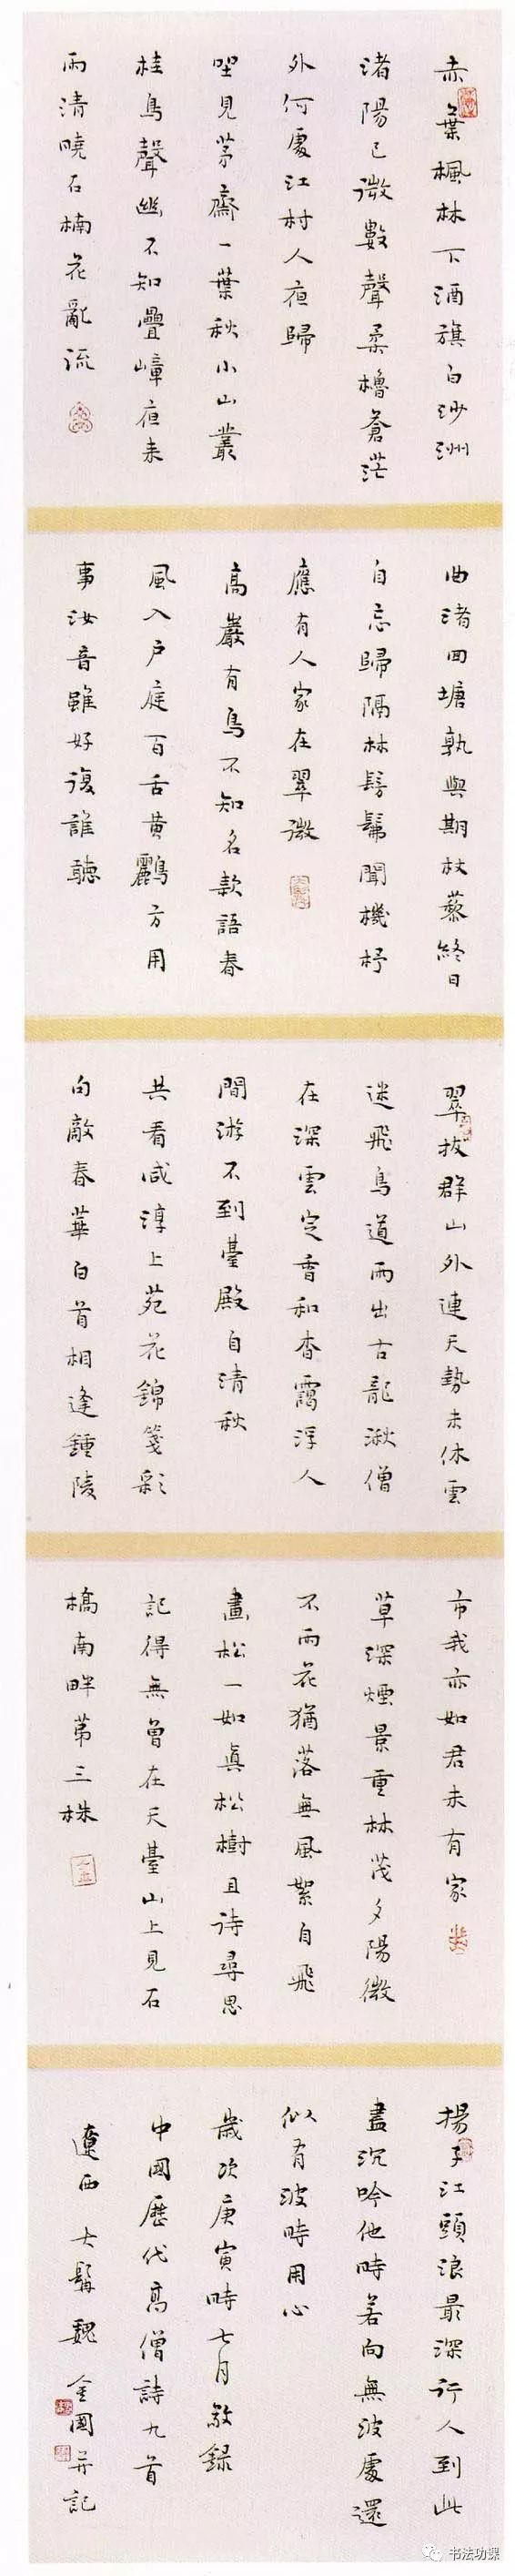 赤葉楓林下酒旗白沙洲
渚陽已微數聲柔櫓蒼茫
外何處江村人夜歸
坐見茅齋一葉秋小山叢
桂鳥聲幽不知疊嶂夜來
雨清曉石楠花亂流
曲渚回塘孰與期杖藜終日
自忘歸隔林髣髴聞機杼
應有人家在翠微
高巖有鳥不知名款語春
風入戶庭百舌黃鸝方用
事汝音雖好復誰聽
翠拔群山外連天勢未休雲
迷飛鳥道雨出古龍湫僧
在深雲定香和杳靄浮人
間游不到臺殿自清秋
共看咸淳上苑花錦箋彩
句敵春華白首相逢鍾陵
市我亦如君未有家
草深煙景重林茂夕陽微
不雨花猶落無風絮自飛
畫松一如真松樹且待尋思
記得無曾在天臺山上見石
橋南畔第三株
揚子江頭浪最深行人到此
盡沉吟他時若向無波處還
似有波時用心
歲次庚寅時七月敬錄
中國歷代高僧詩九首
遼西大髯魏金國并記
书法功课